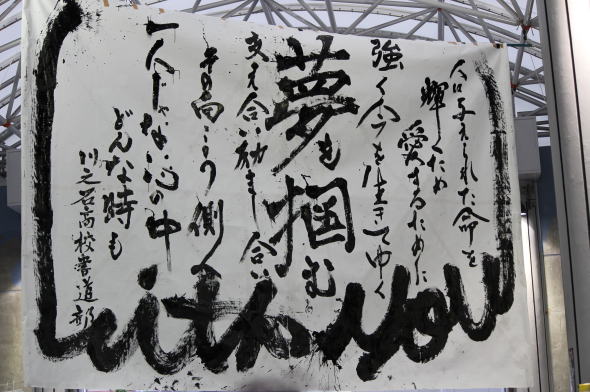 人は与えられた命を
輝くため
愛するために
強く今を生きてゆく
夢を掴む
支え合い励まし合い
その向こう側へ
一人じゃない心の中
どんな時も
川之石高校書道部
with you